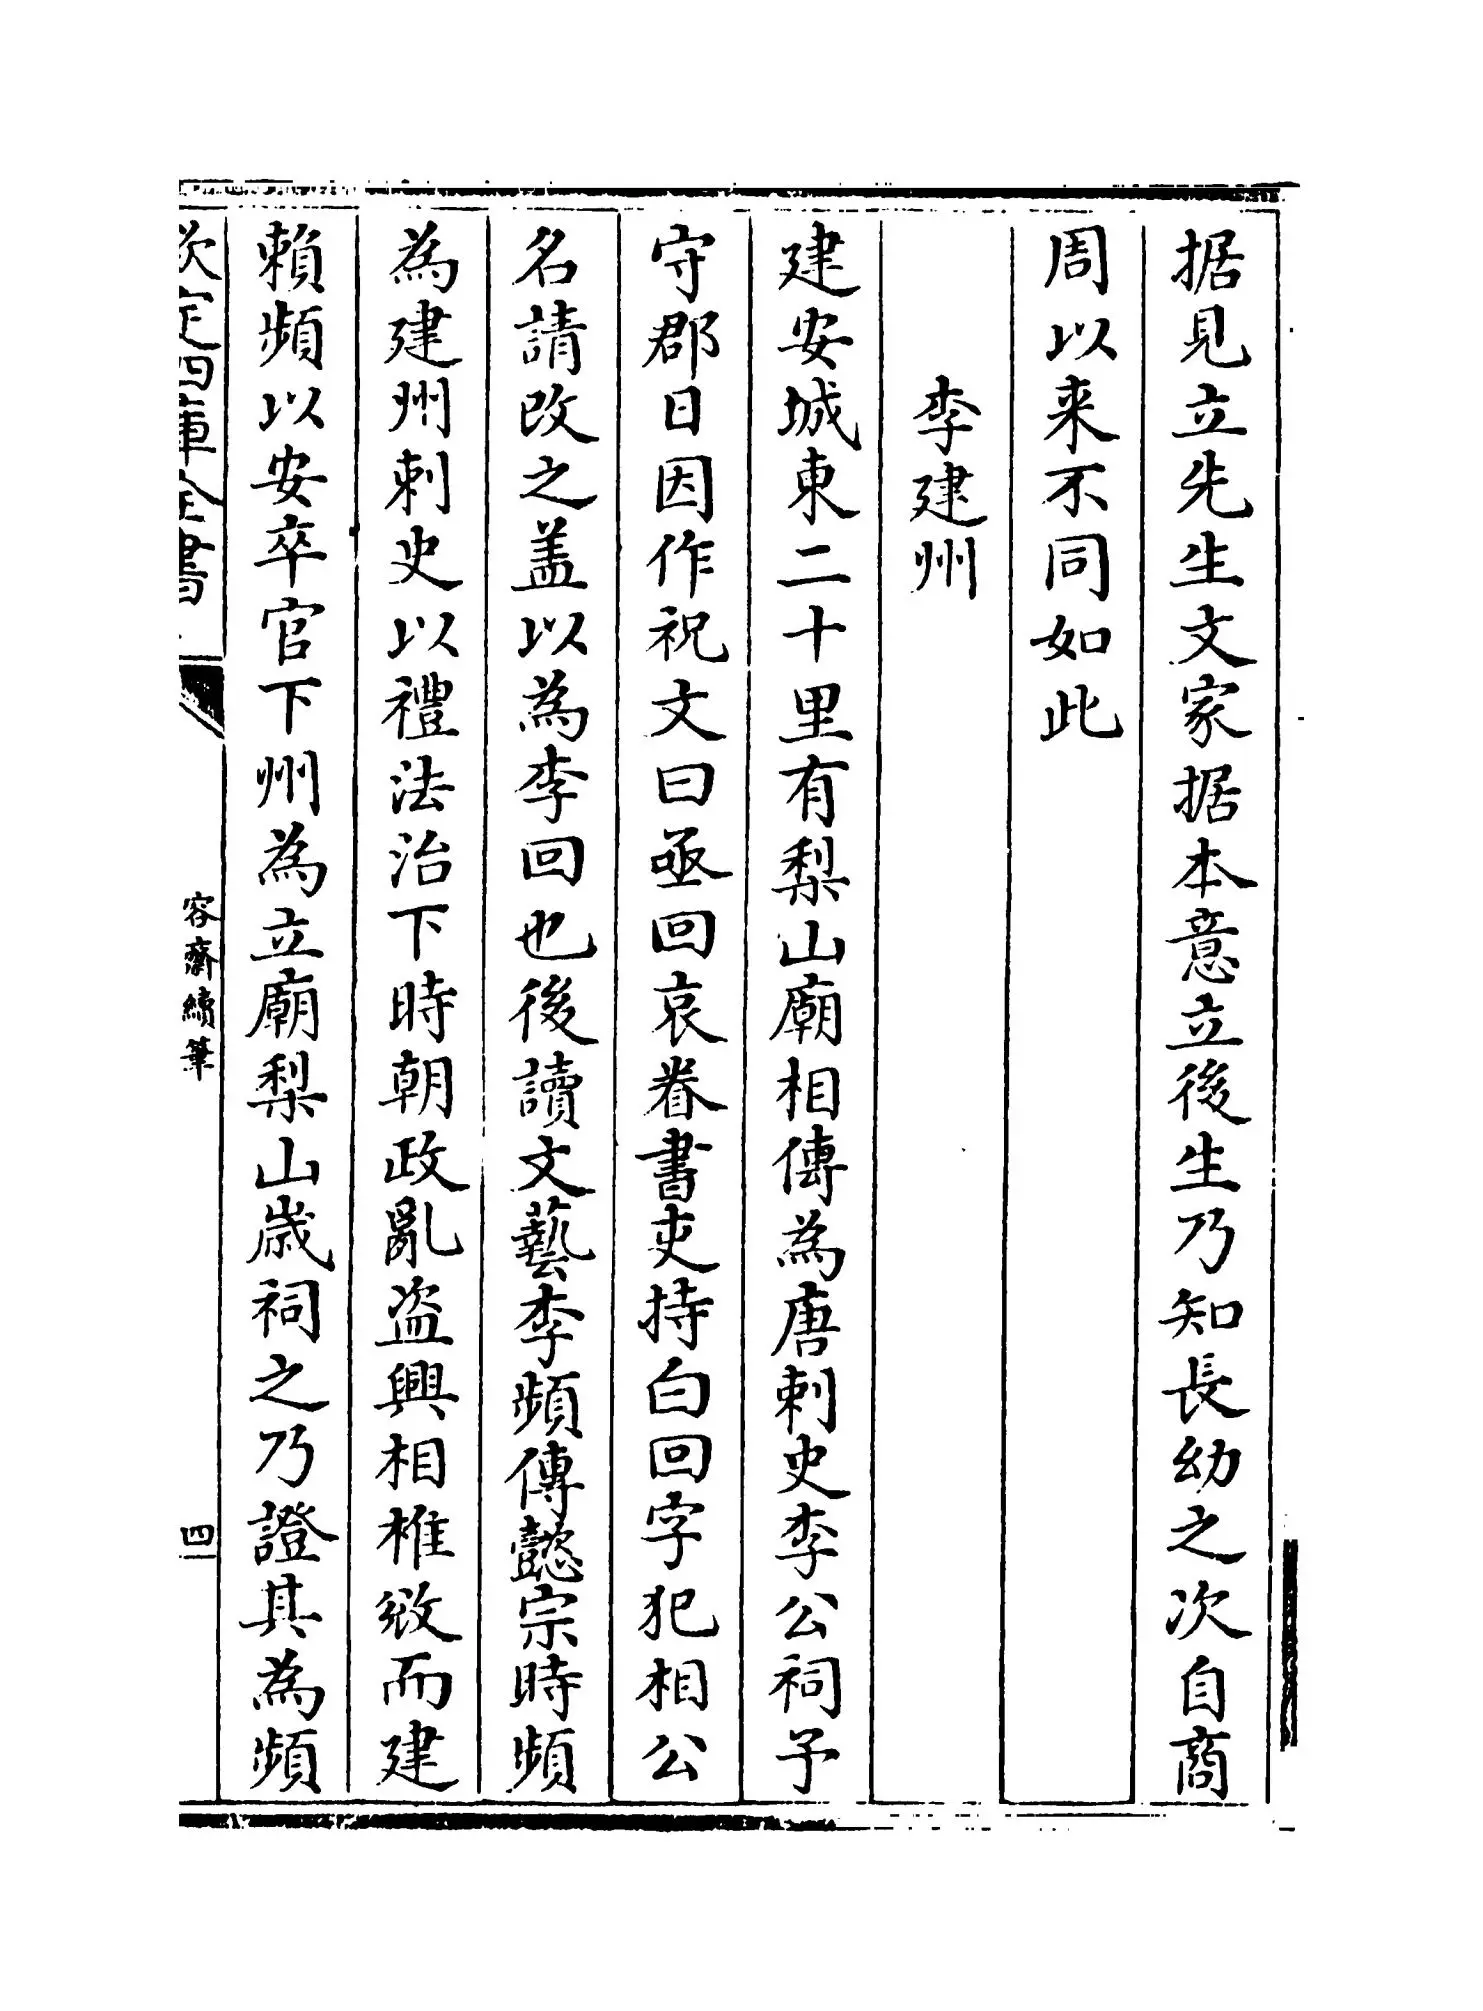 据見立先生文家据本意立後生乃知長幼之次自商
周以来不同如此
李建州
建安城東二十里有梨山廟相傳為唐刺史李公祠予
守郡日因作祝文曰亟回哀眷書吏持白回字犯相公
名請改之盖以為李回也後讀文藝李頻傳懿宗時頻
為建州刺史以禮法治下時朝政亂盗興相椎敚而建
賴頻以安卒官下州為立廟梨山歲祠之乃證其為頻
欽定四庫全書
容齋續筆
四